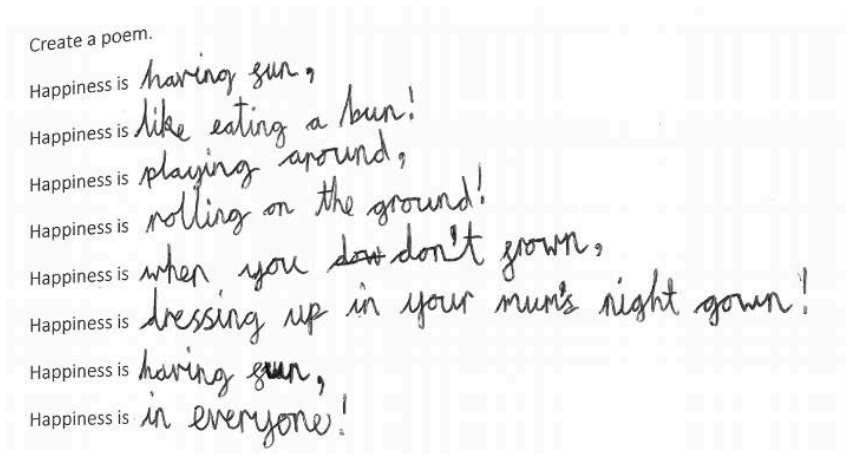 Create a poem.
Happiness is having fun,
Happiness is like eating a bun!
Happiness is playing around,
Happiness is rolling on the ground!
Happiness is when you don't frown,
Happiness is dressing up in your mum's night gown!
Happiness is having fun,
Happiness is in everyone!